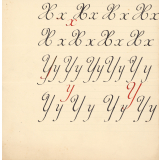 Xx Xx Xx Xx
x
Xx Xx Xx Xx
x
Yy Yy Yy Yy
y Y
Yy Yy Yy Yy